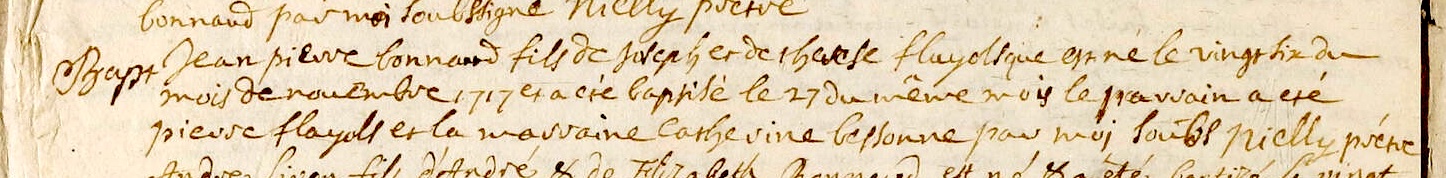 bonnaud par moi soubssigné Rielly pretre
Bapt Jean pierre bonnaud fils de Joseph et de therese flayolsque est né le vingt six du
mois de novembre 1717 et a eté baptisé le 27 du même mois le parrain a eté
pierre flayols et la marraine Catherine bessonne par moi soubs Rielly prétre
André fils d'André & de Elizabeth Bonnaud est né & a été baptizé le vingt